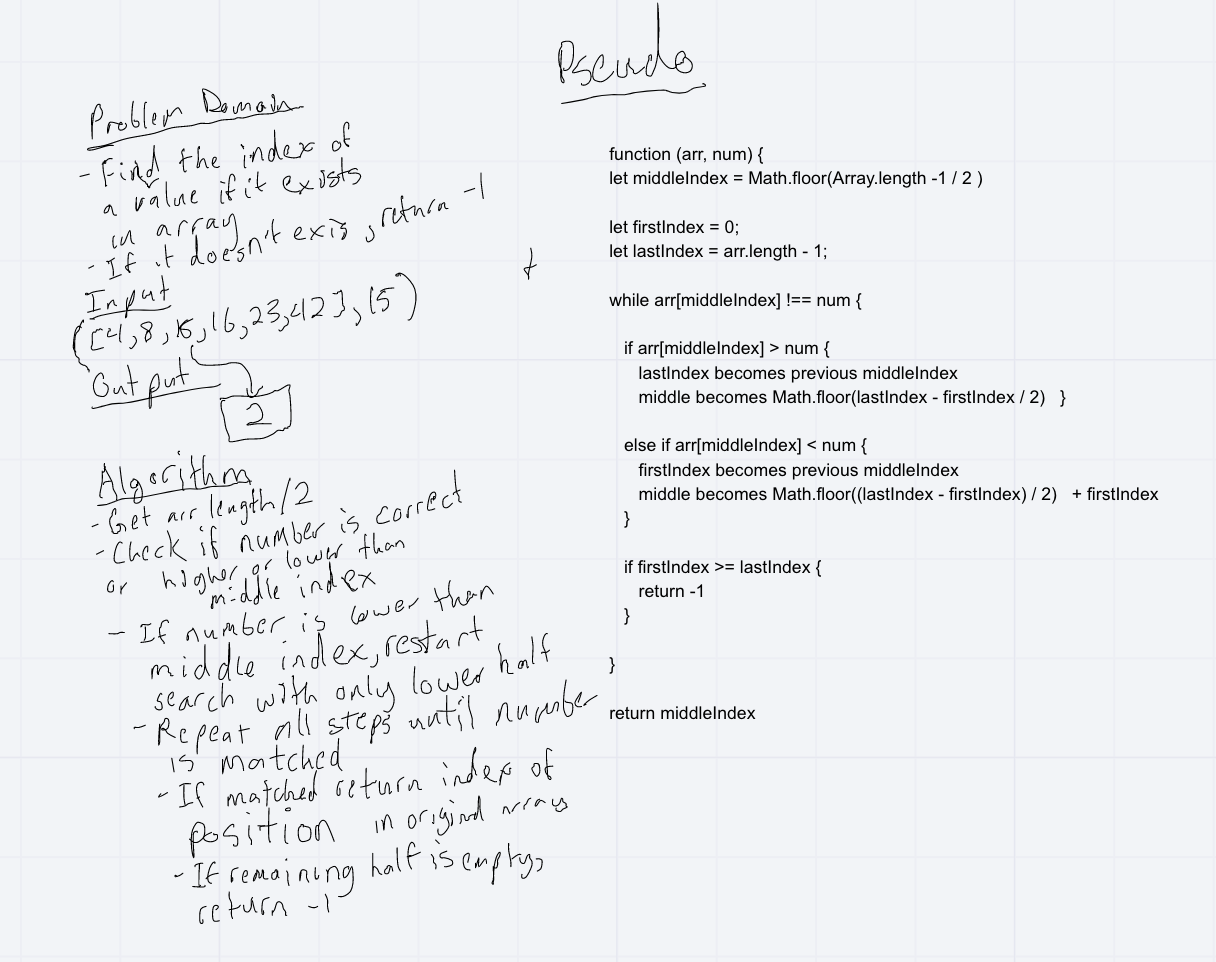 Pseudo
Problem Domain
- Find the index of
a value if it exists
in array
- If it doesn't exis, return -1
Input
([4,8,15,16,23,42], 15)
Output
2
Algorithm
- Get arr length/2
- Check if number is correct
or higher or lower than
middle index
- If number is lower than
middle index, restart
search with only lower half
- Repeat all steps until number
is matched
- If matched return index of
position in original array
- If remaining half is empty,
return -1
function (arr, num) {
let middleIndex = Math.floor(Array.length -1 / 2 )
let firstIndex = 0;
let lastIndex = arr.length - 1;
while arr[middleIndex] !== num {
if arr[middleIndex] > num {
lastIndex becomes previous middleIndex
middle becomes Math.floor(lastIndex - firstIndex / 2) }
else if arr[middleIndex] < num {
firstIndex becomes previous middleIndex
middle becomes Math.floor((lastIndex - firstIndex) / 2) + firstIndex
}
if firstIndex >= lastIndex {
return -1
}
}
return middleIndex